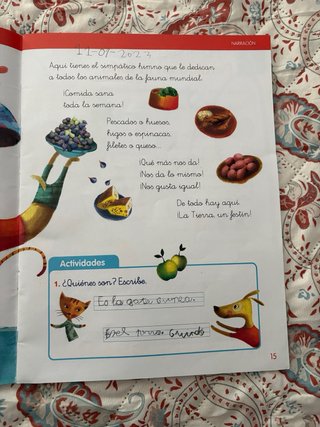 11-09-2023
NARRACIÓN
Aquí tienes el simpático himno que le dedican
a todos los animales de la fauna mundial.
¡Comida sana
toda la semana!
Pescados o huesos,
higos o espinacas,
filetes o queso...
¡Qué más nos da!
¡Nos da lo mismo!
¡Nos gusta igual!
De todo hay aquí.
¡La Tierra, un festín!
Actividades
1. ¿Quiénes son? Escribe.
Es la gata
15